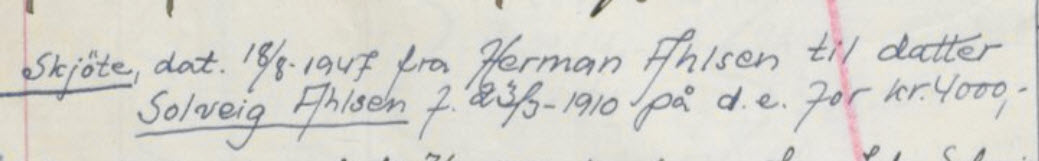 Skjöte, dat. 18/8-1947 fra Herman Ahlsen til datter
Solveig Ahlsen f. 23/3-1910 på d.e. for kr. 4000,-